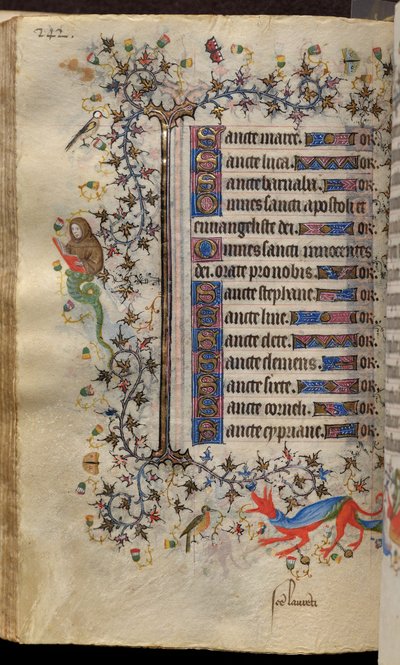 242.
Sancte marce. or.
Sancte luca. or.
Sancte barnaba. or.
Omnes sancti apostoli et
euuangeliste dei. or.
Omnes sancti innocentes
dei. orate pro nobis. or.
Sancte stephane. or.
Sancte line. or.
Sancte clete. or.
Sancte clemens. or.
Sancte sixte. or.
Sancte corneli. or.
Sancte cypriane. or.
sce laurenti